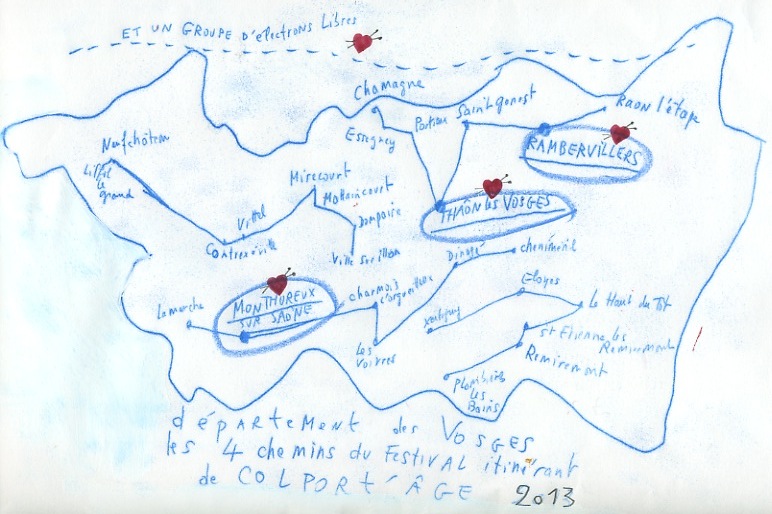 ET UN GROUPE D'électrons Libres
Chamagne
Essegney
Portieux
Saint Gorgost
Raon l'étape
RAMBERVILLERS
THAÔN les VOSGES
Neufchâteau
Liffol
le
grand
Mirecourt
Mattaincourt
Dompaire
Vittel
Contrexéville
Ville sur illon
Dinozé
cheniménil
MONTHUREUX
SUR SAÔNE
Lamarche
charmois
l'orgueilleux
Les
Voivres
Xertigny
Eloyes
Le Haut du Tôt
st Etienne les
Remiremont
Remiremont
Plombières
les
Bains
département des VOSGES
les 4 chemins du FESTIVAL itinérant
de COLPORT'ÂGE 2013